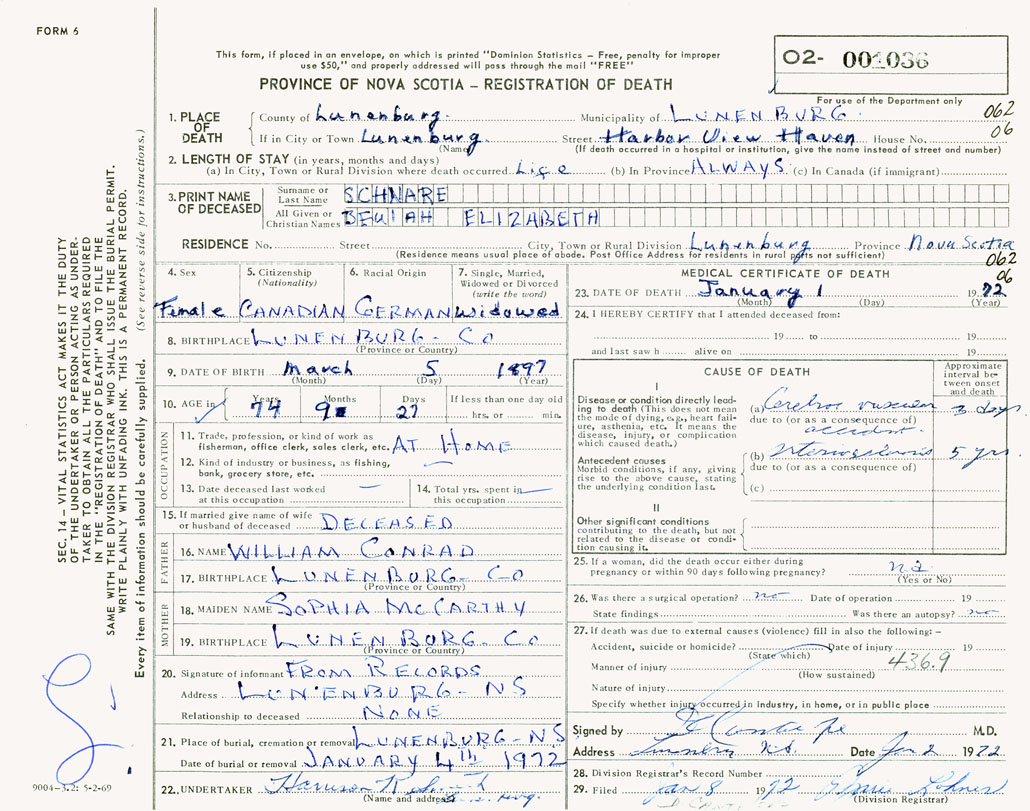 FORM 6
This form, if placed in an envelope, on which is printed "Dominion Statistics – Free, penalty for improper
use $50," and properly addressed will pass through the mail "FREE"
PROVINCE OF NOVA SCOTIA – REGISTRATION OF DEATH
02- 001036
For use of the Department only
1. PLACE OF DEATH County of Lunenburg. Municipality of LUNENBURG 062
If in City or Town Lunenburg Street Harbor View Haven House No. 06
(Name) (If death occurred in a hospital or institution, give the name instead of street and number)
2. LENGTH OF STAY (in years, months and days)
(a) In City, Town or Rural Division where death occurred Life (b) In Province ALWAYS (c) In Canada (if immigrant)
3. PRINT NAME OF DECEASED Surname or Last Name SCHNARE
All Given or Christian Names BEULAH ELIZABETH
RESIDENCE No. Street City, Town or Rural Division Lunenburg Province Nova Scotia
(Residence means usual place of abode. Post Office Address for residents in rural parts not sufficient) 062
06
4. Sex 5. Citizenship (Nationality) 6. Racial Origin 7. Single, Married, Widowed or Divorced (write the word)
Female CANADIAN GERMAN Widowed
8. BIRTHPLACE LUNENBURG - CO
(Province or Country)
9. DATE OF BIRTH March 5 1897
(Month) (Day) (Year)
10. AGE in Years Months Days If less than one day old
74 9 27 hrs. or min.
OCCUPATION
11. Trade, profession, or kind of work as
fisherman, office clerk, sales clerk, etc. AT HOME
12. Kind of industry or business, as fishing,
bank, grocery store, etc. –
13. Date deceased last worked
at this occupation –
14. Total yrs. spent in
this occupation –
15. If married give name of wife
or husband of deceased DECEASED
FATHER
16. NAME WILLIAM CONRAD
17. BIRTHPLACE LUNENBURG - CO
(Province or Country)
MOTHER
18. MAIDEN NAME SOPHIA McCARTHY
19. BIRTHPLACE LUNENBURG - CO
(Province or Country)
20. Signature of informant FROM RECORDS
Address LUNENBURG - NS
Relationship to deceased NONE
21. Place of burial, cremation or removal LUNENBURG - NS
Date of burial or removal JANUARY 4th 1972
22. UNDERTAKER Harrison
(Name and address)
MEDICAL CERTIFICATE OF DEATH
23. DATE OF DEATH January 1 1972
(Month) (Day) (Year)
24. I HEREBY CERTIFY that I attended deceased from:
19 to 19
and last saw h alive on 19
CAUSE OF DEATH
Approximate interval between onset and death
I
Disease or condition directly leading to death (This does not mean the mode of dying, e.g., heart failure, asthenia, etc. It means the disease, injury, or complication which caused death.)
(a) Cerebro vascular 3 days
due to (or as a consequence of)
accident.
Antecedent causes
Morbid conditions, if any, giving rise to the above cause, stating the underlying condition last.
(b) Arteriosclerosis 5 yrs.
due to (or as a consequence of)
(c)
II
Other significant conditions
contributing to the death, but not related to the disease or condition causing it.
25. If a woman, did the death occur either during
pregnancy or within 90 days following pregnancy?
(Yes or No)
26. Was there a surgical operation? no Date of operation 19
State findings Was there an autopsy? no
27. If death was due to external causes (violence) fill in also the following: –
Accident, suicide or homicide? Date of injury 19
(State which)
436.9
Manner of injury
(How sustained)
Nature of injury
Specify whether injury occurred in industry, in home, or in public place
Signed by M.D.
Address N.S. Date Jan 2 1972
28. Division Registrar's Record Number
29. Filed Jan 8 1972
(Division Registrar)
SEC. 14 – VITAL STATISTICS ACT MAKES IT THE DUTY
OF THE UNDERTAKER OR PERSON ACTING AS UNDER-
TAKER TO OBTAIN ALL THE PARTICULARS REQUIRED
IN THE "REGISTRATION OF DEATH" AND TO FILE THE
SAME WITH THE DIVISION REGISTRAR WHO SHALL ISSUE THE BURIAL PERMIT.
WRITE PLAINLY WITH UNFADING INK. THIS IS A PERMANENT RECORD.
Every item of information should be carefully supplied. (See reverse side for instructions.)
9004-3.2: 5-2-69